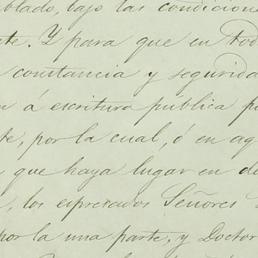 blado, bajo las condicione
te. Y para que en tod
constancia y segurida
n á escritura publica p
te, por la cual, ó en aq
que haya lugar en de
, los espresados Señores
por la una parte, y Doctor